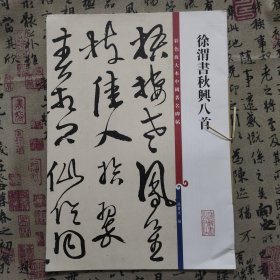 徐渭書秋興八首
彩色放大本中國著名碑帖
梧棲老鳳凰
枝佳人拾翠
春相問仙侶同